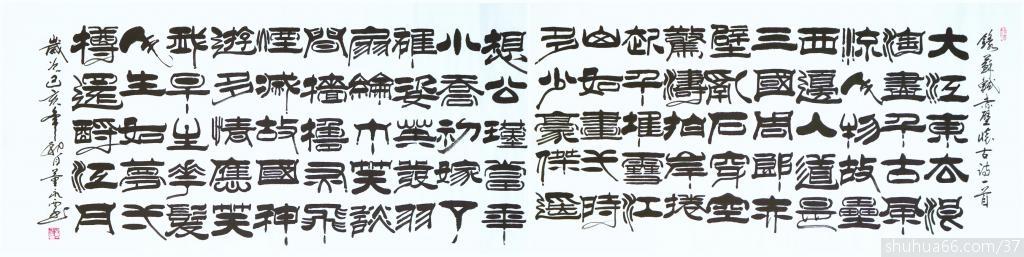 錄蘇軾赤壁懷古詩一首
大江東去浪
淘盡千古風
流人物故壘
西邊人道是
三國周郎赤
壁亂石穿空
驚濤拍岸捲
起千堆雪江
山如畫弌時
多少豪傑遙
想公瑾當年
小喬初嫁了
雄姿英發羽
扇綸巾笑談
間檣櫓灰飛
煙滅故國神
遊多情應笑
我早生華髮
人生如夢弌
樽還酹江月
歲次己亥年
shuhua66.com/37